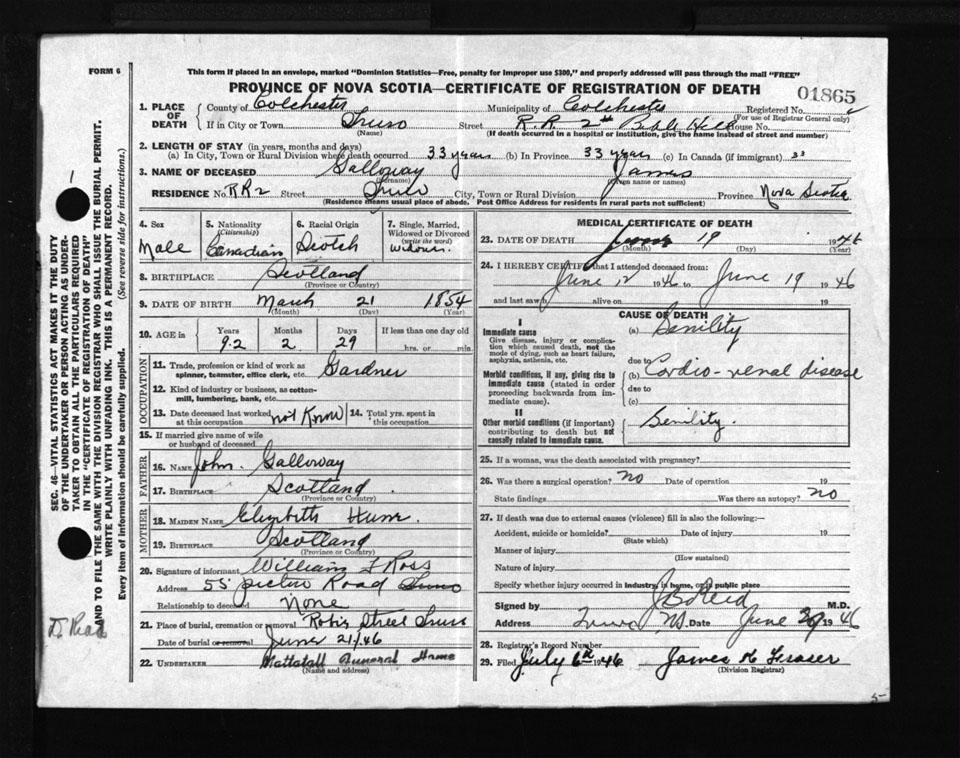 FORM 6
This form if placed in an envelope, marked "Dominion Statistics—Free, penalty for improper use $300," and properly addressed will pass through the mail "FREE"
PROVINCE OF NOVA SCOTIA—CERTIFICATE OF REGISTRATION OF DEATH
01865
1. PLACE OF DEATH County of Colchester Municipality of Colchester Registered No.
(For use of Registrar General only)
If in City or Town Truro Street R.R. 2 Bible Hill House No.
(Name) (If death occurred in a hospital or institution, give the name instead of street and number)
2. LENGTH OF STAY (in years, months and days)
(a) In City, Town or Rural Division where death occurred 33 years (b) In Province 33 years (c) In Canada (if immigrant) 33
3. NAME OF DECEASED Galloway James
(Surname) (Given name or names)
RESIDENCE No. RR2 Street Truro City, Town or Rural Division Province Nova Scotia
(Residence means usual place of abode. Post Office Address for residents in rural parts not sufficient)
4. Sex 5. Nationality (Citizenship) 6. Racial Origin 7. Single, Married, Widowed or Divorced (write the word)
Male Canadian Scotch widow.
8. BIRTHPLACE Scotland
(Province or Country)
9. DATE OF BIRTH March 21 1854
(Month) (Day) (Year)
10. AGE in Years Months Days If less than one day old
92 2 29 hrs. or min.
OCCUPATION
11. Trade, profession or kind of work as spinner, teamster, office clerk, etc. Gardner
12. Kind of industry or business, as cotton-mill, lumbering, bank, etc.
13. Date deceased last worked at this occupation not Know 14. Total yrs. spent in this occupation
15. If married give name of wife or husband of deceased
FATHER
16. Name John. Galloway
17. Birthplace Scotland.
(Province or Country)
MOTHER
18. MAIDEN NAME Elizabeth Hume
19. BIRTHPLACE Scotland
(Province or Country)
20. Signature of informant William F Ross
Address 55 Pictou Road Truro
Relationship to deceased None
21. Place of burial, cremation or removal Robie Street Truro
Date of burial or removal June 21/46
22. UNDERTAKER Mattatall Funeral Home
(Name and address)
MEDICAL CERTIFICATE OF DEATH
23. DATE OF DEATH June 19 1946
(Month) (Day) (Year)
24. I HEREBY CERTIFY that I attended deceased from:
June 12 1946 to June 19 1946
and last saw h alive on 19
CAUSE OF DEATH
I
Immediate cause (a) Senility
Give disease, injury or complication which caused death, not the mode of dying, such as heart failure, asphyxia, asthenia, etc.
due to
Morbid conditions, if any, giving rise to immediate cause (stated in order proceeding backwards from immediate cause). (b) Cardio-renal disease
due to
(c)
II
Other morbid conditions (if important) contributing to death but not causally related to immediate cause. Senility.
25. If a woman, was the death associated with pregnancy?
26. Was there a surgical operation? No Date of operation 19
State findings Was there an autopsy? no
27. If death was due to external causes (violence) fill in also the following:—
Accident, suicide or homicide? Date of injury 19
(State which)
Manner of injury
(How sustained)
Nature of injury
Specify whether injury occurred in industry, in home, or in public place
Signed by J B Reid M.D.
Address Truro NS. Date June 29 1946
28. Registrar's Record Number
29. Filed July 6th 1946 James K Fraser
(Division Registrar)
SEC. 46—VITAL STATISTICS ACT MAKES IT THE DUTY
OF THE UNDERTAKER OR PERSON ACTING AS UNDER-
TAKER TO OBTAIN ALL THE PARTICULARS REQUIRED
IN THE "CERTIFICATE OF REGISTRATION OF DEATH"
AND TO FILE THE SAME WITH THE DIVISION REGISTRAR WHO SHALL ISSUE THE BURIAL PERMIT.
WRITE PLAINLY WITH UNFADING INK. THIS IS A PERMANENT RECORD.
Every item of information should be carefully supplied. (See reverse side for instructions.)